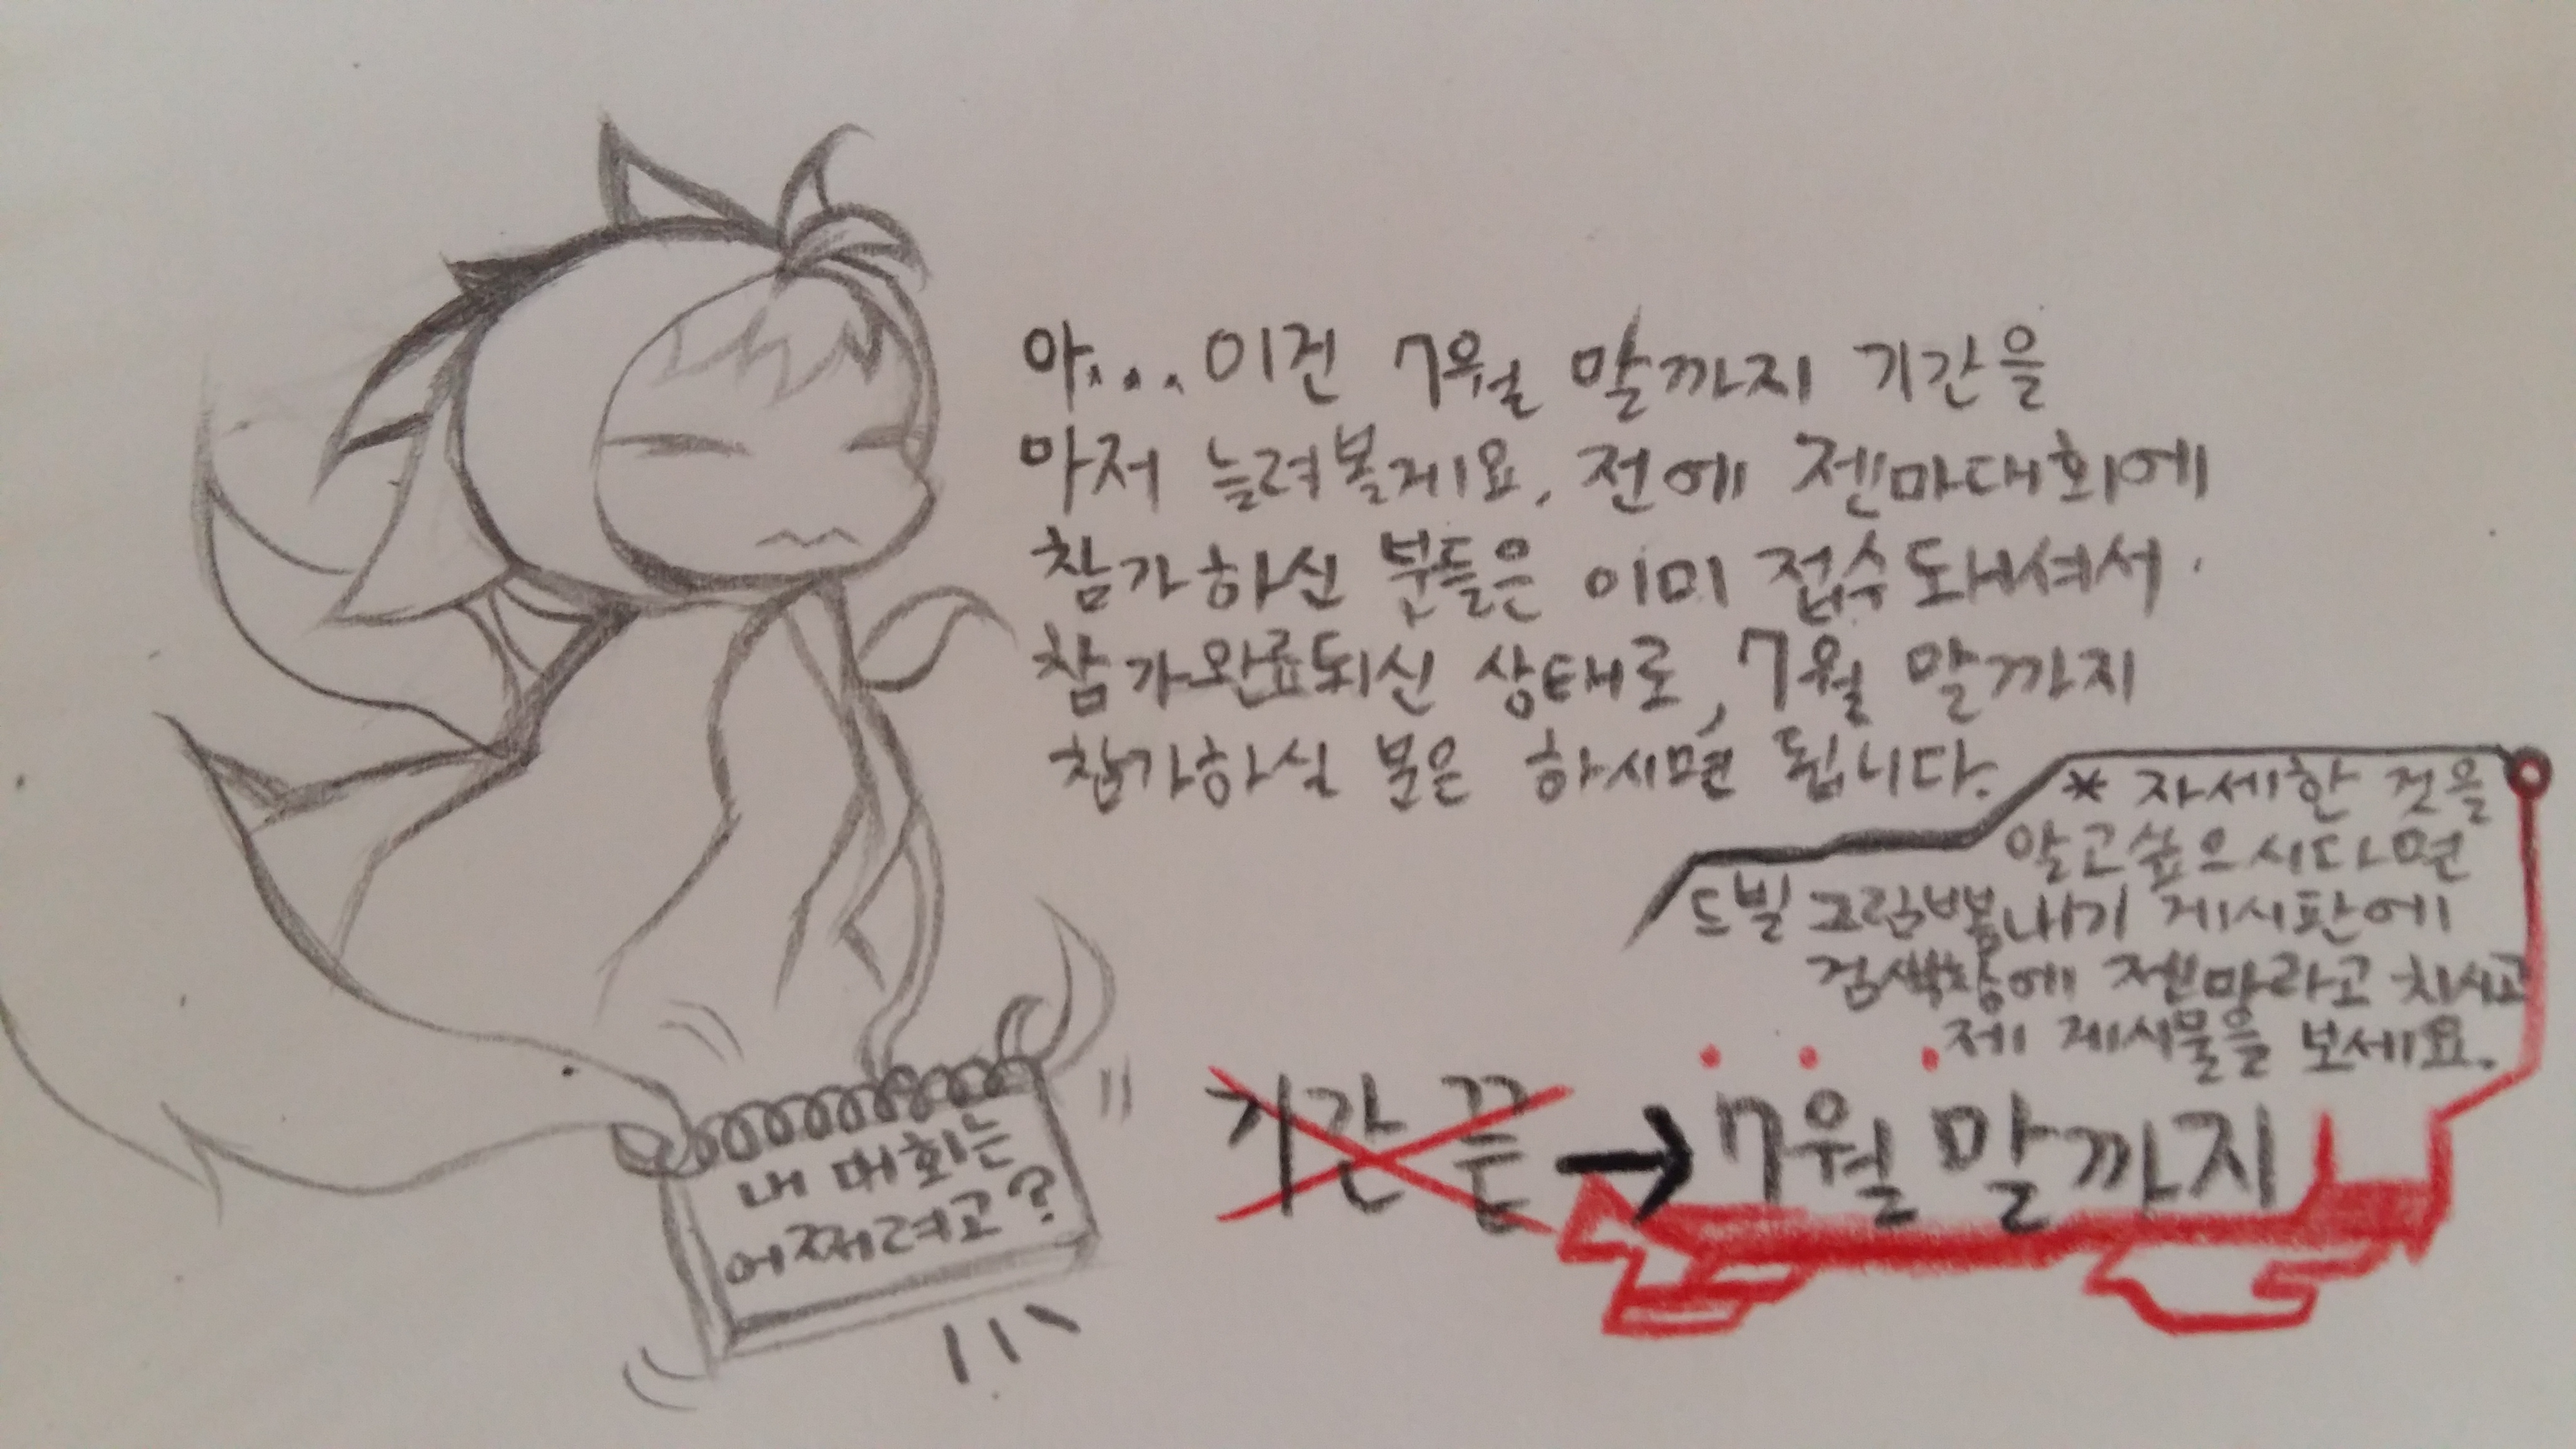 아... 이건 7월 말까지 기간을
마저 늘려볼게요. 전에 젠마대회에
참가하신 분들은 이미 접수돼셔서
참가완료되신 상태로, 7월 말까지
참가하실 분은 하시면 됩니다.
* 자세한 것을
알고싶으시다면
드빌 그림뽐내기 게시판에
검색창에 젠마라고 치시고
제 게시물을 보세요.
기간 끝 → 7월 말까지
내 대회는
어쩌려고?